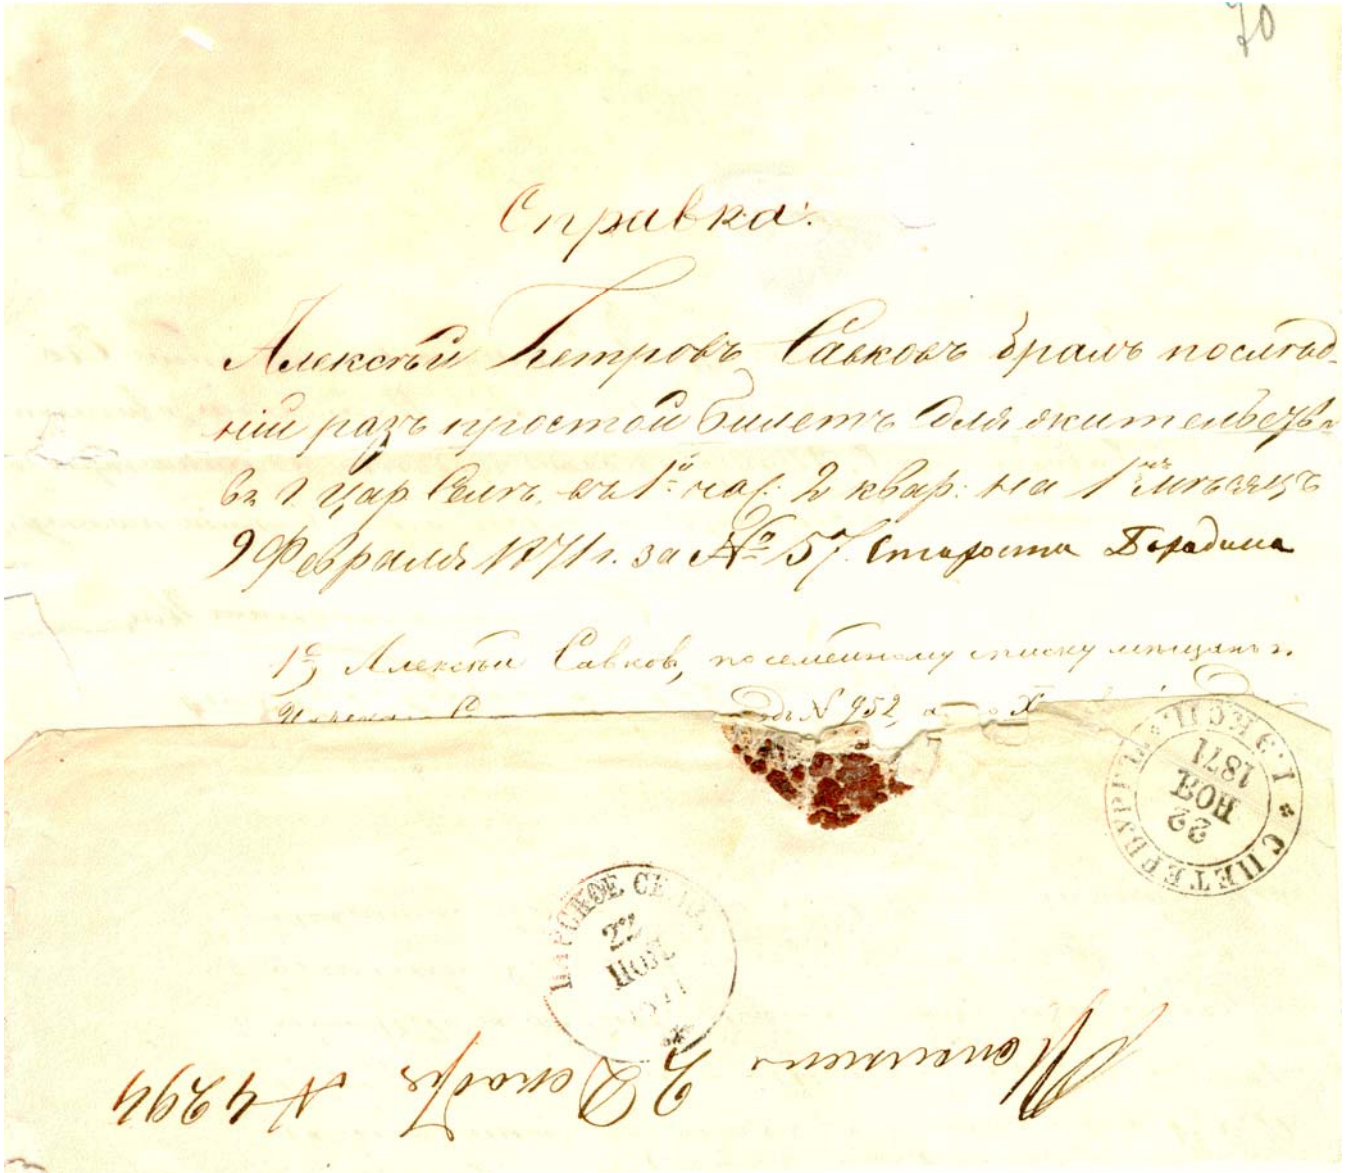 70
Справка:
Алексѣй Петровъ Савковъ бралъ послѣд-
ній разъ простой билетъ для жительства
въ г. Цар Селѣ, въ 1й час: 2 квар: на 1нъ мѣсяцъ
9 Февраля 1871 г. за № 57. Староста
1е, Алексѣй Савковъ, по семейному списку мѣщанъ г.
№ 952,
С.ПЕТЕРБУРГЪ I. ЭКСП.
22
НОЯ
1871
ЦАРСКОЕ СЕЛО
22
НОЯ
1871
2 Декабря № 4294